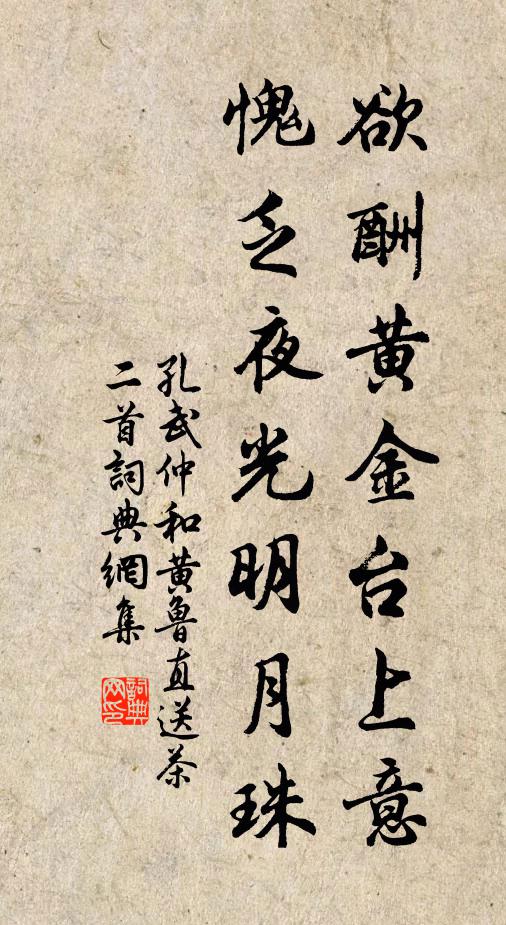 欲酬黄金台上意
愧乏夜光明月珠
孔武仲和黄魯直送茶
二首詞典網集
詞典
网印